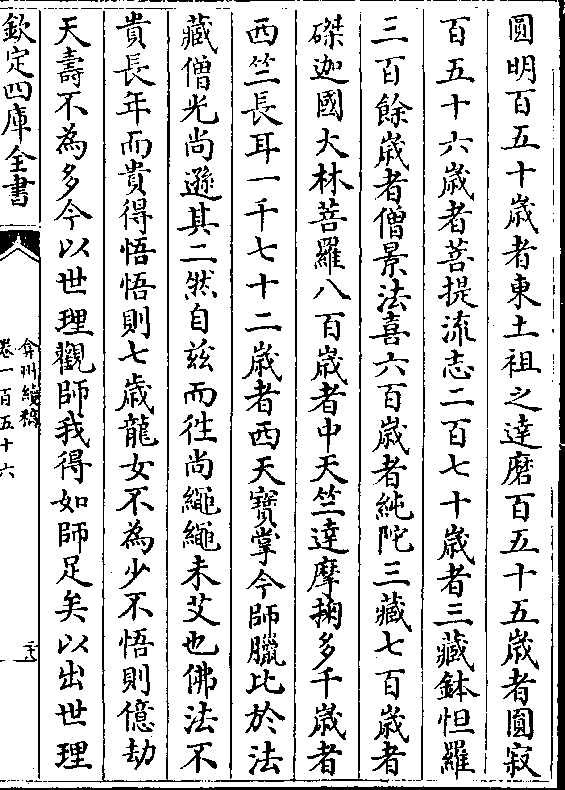 圓明百五十歳者東土祖之達磨百五十五歳者圓寂
百五十六歳者菩提流志二百七十歳者三藏鉢怛羅
三百餘歳者僧景法喜六百歳者純陀三藏七百歳者
磔迦國大林菩羅八百歳者中天竺達摩掬多千歳者
西竺長耳一千七十二歳者西天寶掌今師臘比於法
藏僧光尚遜其二然自兹而徃尚繩繩未艾也佛法不
貴長年而貴得悟悟則七歳龍女不為少不悟則億劫
天壽不為多今以世理觀師我得如師足矣以出世理
欽定四庫全書
弇州續稿
卷一百五十六